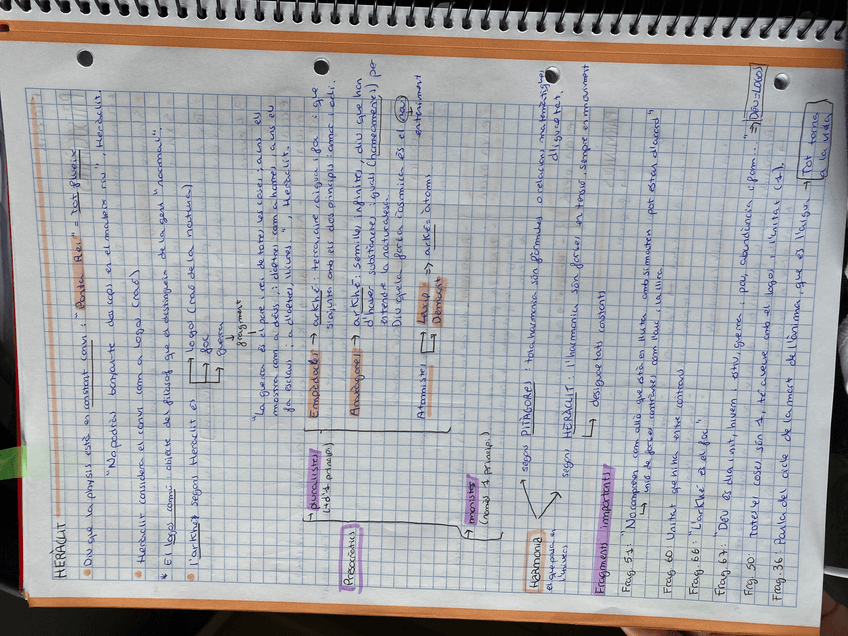 HERÀCLIT
Diu que la physis està en constant canvi: "Panta Rei" = tot flueix
"No podràs banyar-te dos cops en el mateix riu", Heràclit.
Heràclit considera el canvi com a logos (raó)
* El logos comú objecte del filòsof que el distingeix de la gent "normal".
l'arkhé segons Heràclit és → logos (raó de la natura)
→ foc
→ guerra
↓ fragment
"La guerra és el pare i rei de totes les coses; a uns els
mostra com a déus i d'altres com a homes, a uns els
fa esclaus i a d'altres, lliures", Heràclit.
Presocràtics
→ pluralistes
(+ d'1 principi)
Empèdocles → arkhé: terra, aire, aigua i foc i que
s'ajunten amb els dos principis amor i odi.
Anaxàgores → arkhé: semilles infinites, diu que han
d'haver substàncies iguals (homeomeries) per
entendre la naturalesa.
Diu que la força còsmica és el nous
enteniment
Atomistes → Leucip
→ Demòcrit
⇒ arkhé = àtoms
→ monistes
(només 1 principi)
Harmonia
el que passa en
l'univers
segons PITÀGORES: tota harmonia són fórmules o relacions matemàtiques
d'igualtat.
segons HERÀCLIT: l'harmonia són forces en tensió, sempre en moviment
→ desigualtats constants
Fragments importants
Frag. 51: "No comprenen com allò que està en lluita amb si mateix pot estar d'acord"
→ unió de forces contràries com l'arc i la lira
Frag. 60: Unitat que hi ha entre contraris
Frag. 66: "L'arkhé és el foc"
Frag. 67: "Déu és dia i nit, hivern i estiu, guerra i pau, abundància i fam..." ⇒ DÉU = LOGOS
Frag. 50: Totes les coses són 1, té a veure amb el logos i l'unitat (1).
Frag. 36: Parla del cicle de la mort de l'ànima, que és l'aigua → Tot torna
a la vida